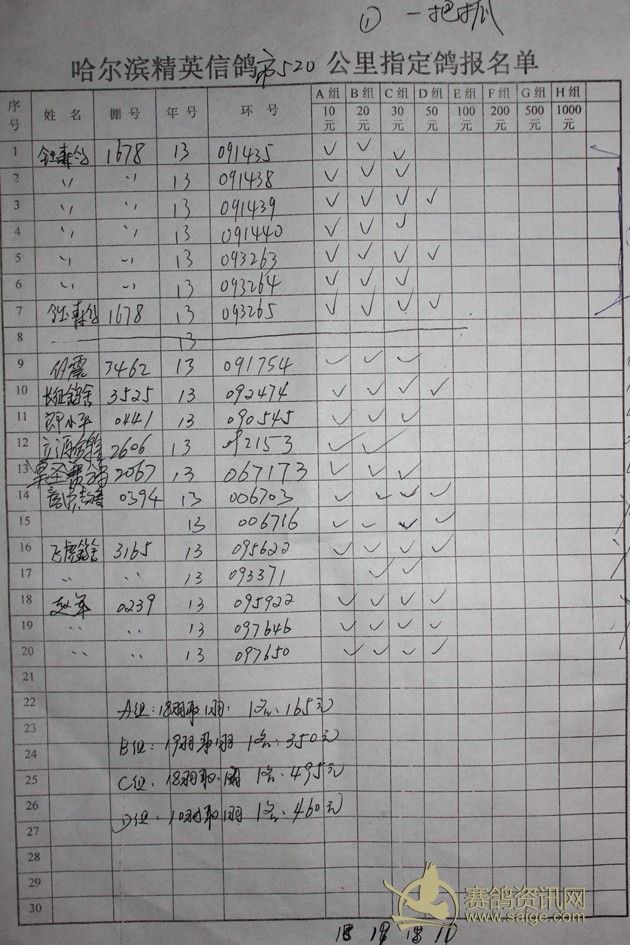 ① 一把抓
哈尔滨精英信鸽市520公里指定鸽报名单
序号 姓名 棚号 年号 环号 A组10元 B组20元 C组30元 D组50元 E组100元 F组200元 G组500元 H组1000元
1 1678 13 091435 ✓ ✓ ✓
2 〃 〃 13 091438 ✓ ✓ ✓
3 〃 〃 13 091439 ✓ ✓ ✓ ✓
4 〃 〃 13 091440 ✓ ✓ ✓
5 〃 〃 13 093263 ✓ ✓ ✓ ✓
6 〃 〃 13 093264 ✓ ✓ ✓
7 1678 13 093265 ✓ ✓ ✓ ✓
8 13
9 3462 13 091754 ✓ ✓ ✓
10 3525 13 092474 ✓ ✓ ✓ ✓
11 0441 13 090545 ✓ ✓ ✓
12 2606 13 092153 ✓ ✓
13 2067 13 067173 ✓ ✓ ✓
14 0394 13 006703 ✓ ✓ ✓ ✓
15 13 006716 ✓ ✓ ✓ ✓
16 3165 13 095622 ✓ ✓ ✓ ✓
17 〃 〃 13 093371 ✓ ✓
18 0239 13 095922 ✓ ✓ ✓ ✓
19 〃 〃 13 097646 ✓ ✓ ✓ ✓
20 〃 〃 13 097650 ✓ ✓ ✓ ✓
21
22 A组:18羽取1羽: 1名:165元
23
24 B组:19羽取1羽 1名:350元
25 C组:18羽取1羽 1名:495元
26 D组:10羽取1羽 1名:460元
27
28
29
30
赛鸽资讯网
www.saige.com
18 19 18